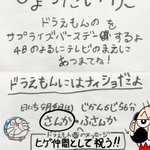 しょうたいじょう
ドラえもんの を
サプライズバースデーするよ
48のまるにテレビのまえに
あつまってね!
ドラえもんにはナイショだよ
9月3日(木) じかん6じ56分
さんか・ふさんか
ドラえもん のメッセージ
ヒゲ仲間として祝う!!